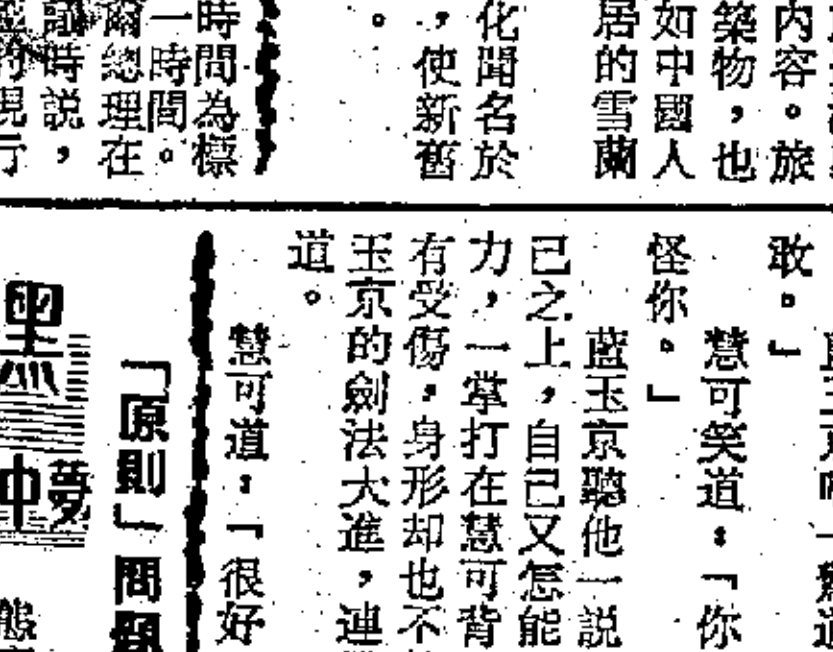 內容。旅
築物，也
如中國人
居的雪蘭
化聞名於
，使新舊
。
時間為標
一時間。
爾總理在
時說，
敢。」
慧可笑道：「你
怪你。」
藍玉京聽他一說
己之上，自己又怎能
力，一掌打在慧可背
有受傷，身形却也不
玉京的劍法大進，連
道。
慧可道：「很好
「原則」問題
夢